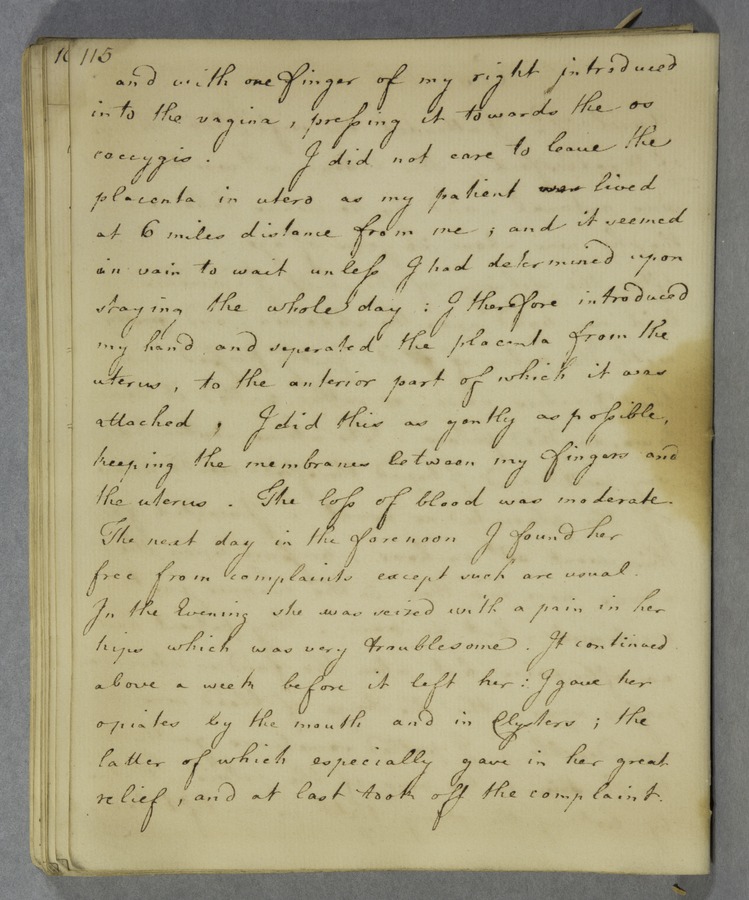 115
and with one finger of my right introduced
into the vagina, pressing it towards the os
coccygis. I did not care to leave the
placenta in utero as my patient was lived
at 6 miles distance from me; and it seemed
in vain to wait unless I had determined upon
staying the whole day: I therefore introduced
my hand and seperated the placenta from the
uterus, to the anterior part of which it was
attached, I did this as gently as possible,
keeping the membranes between my fingers and
the uterus. The loss of blood was moderate.
The next day in the forenoon I found her
free from complaints except such are usual.
In the Evening she was seized with a pain in her
hips which was very troublesome. It continued
above a week before it left her: I gave her
opiates by the mouth and in Clysters; the
latter of which especially gave in her great
relief, and at last took off the complaint.